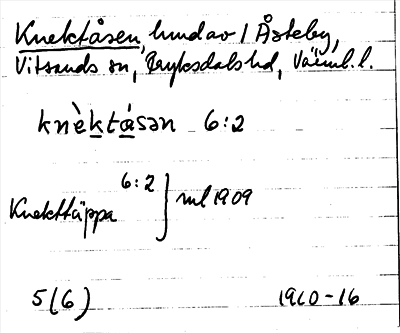 Knektåsen, hmd av 1 Åsteby,
Vitsands sn, Fryksdals hd, Värml. l.
knèktásən 6:2
6:2
Knekttäppa } ml 1909
5(6) 1910-16